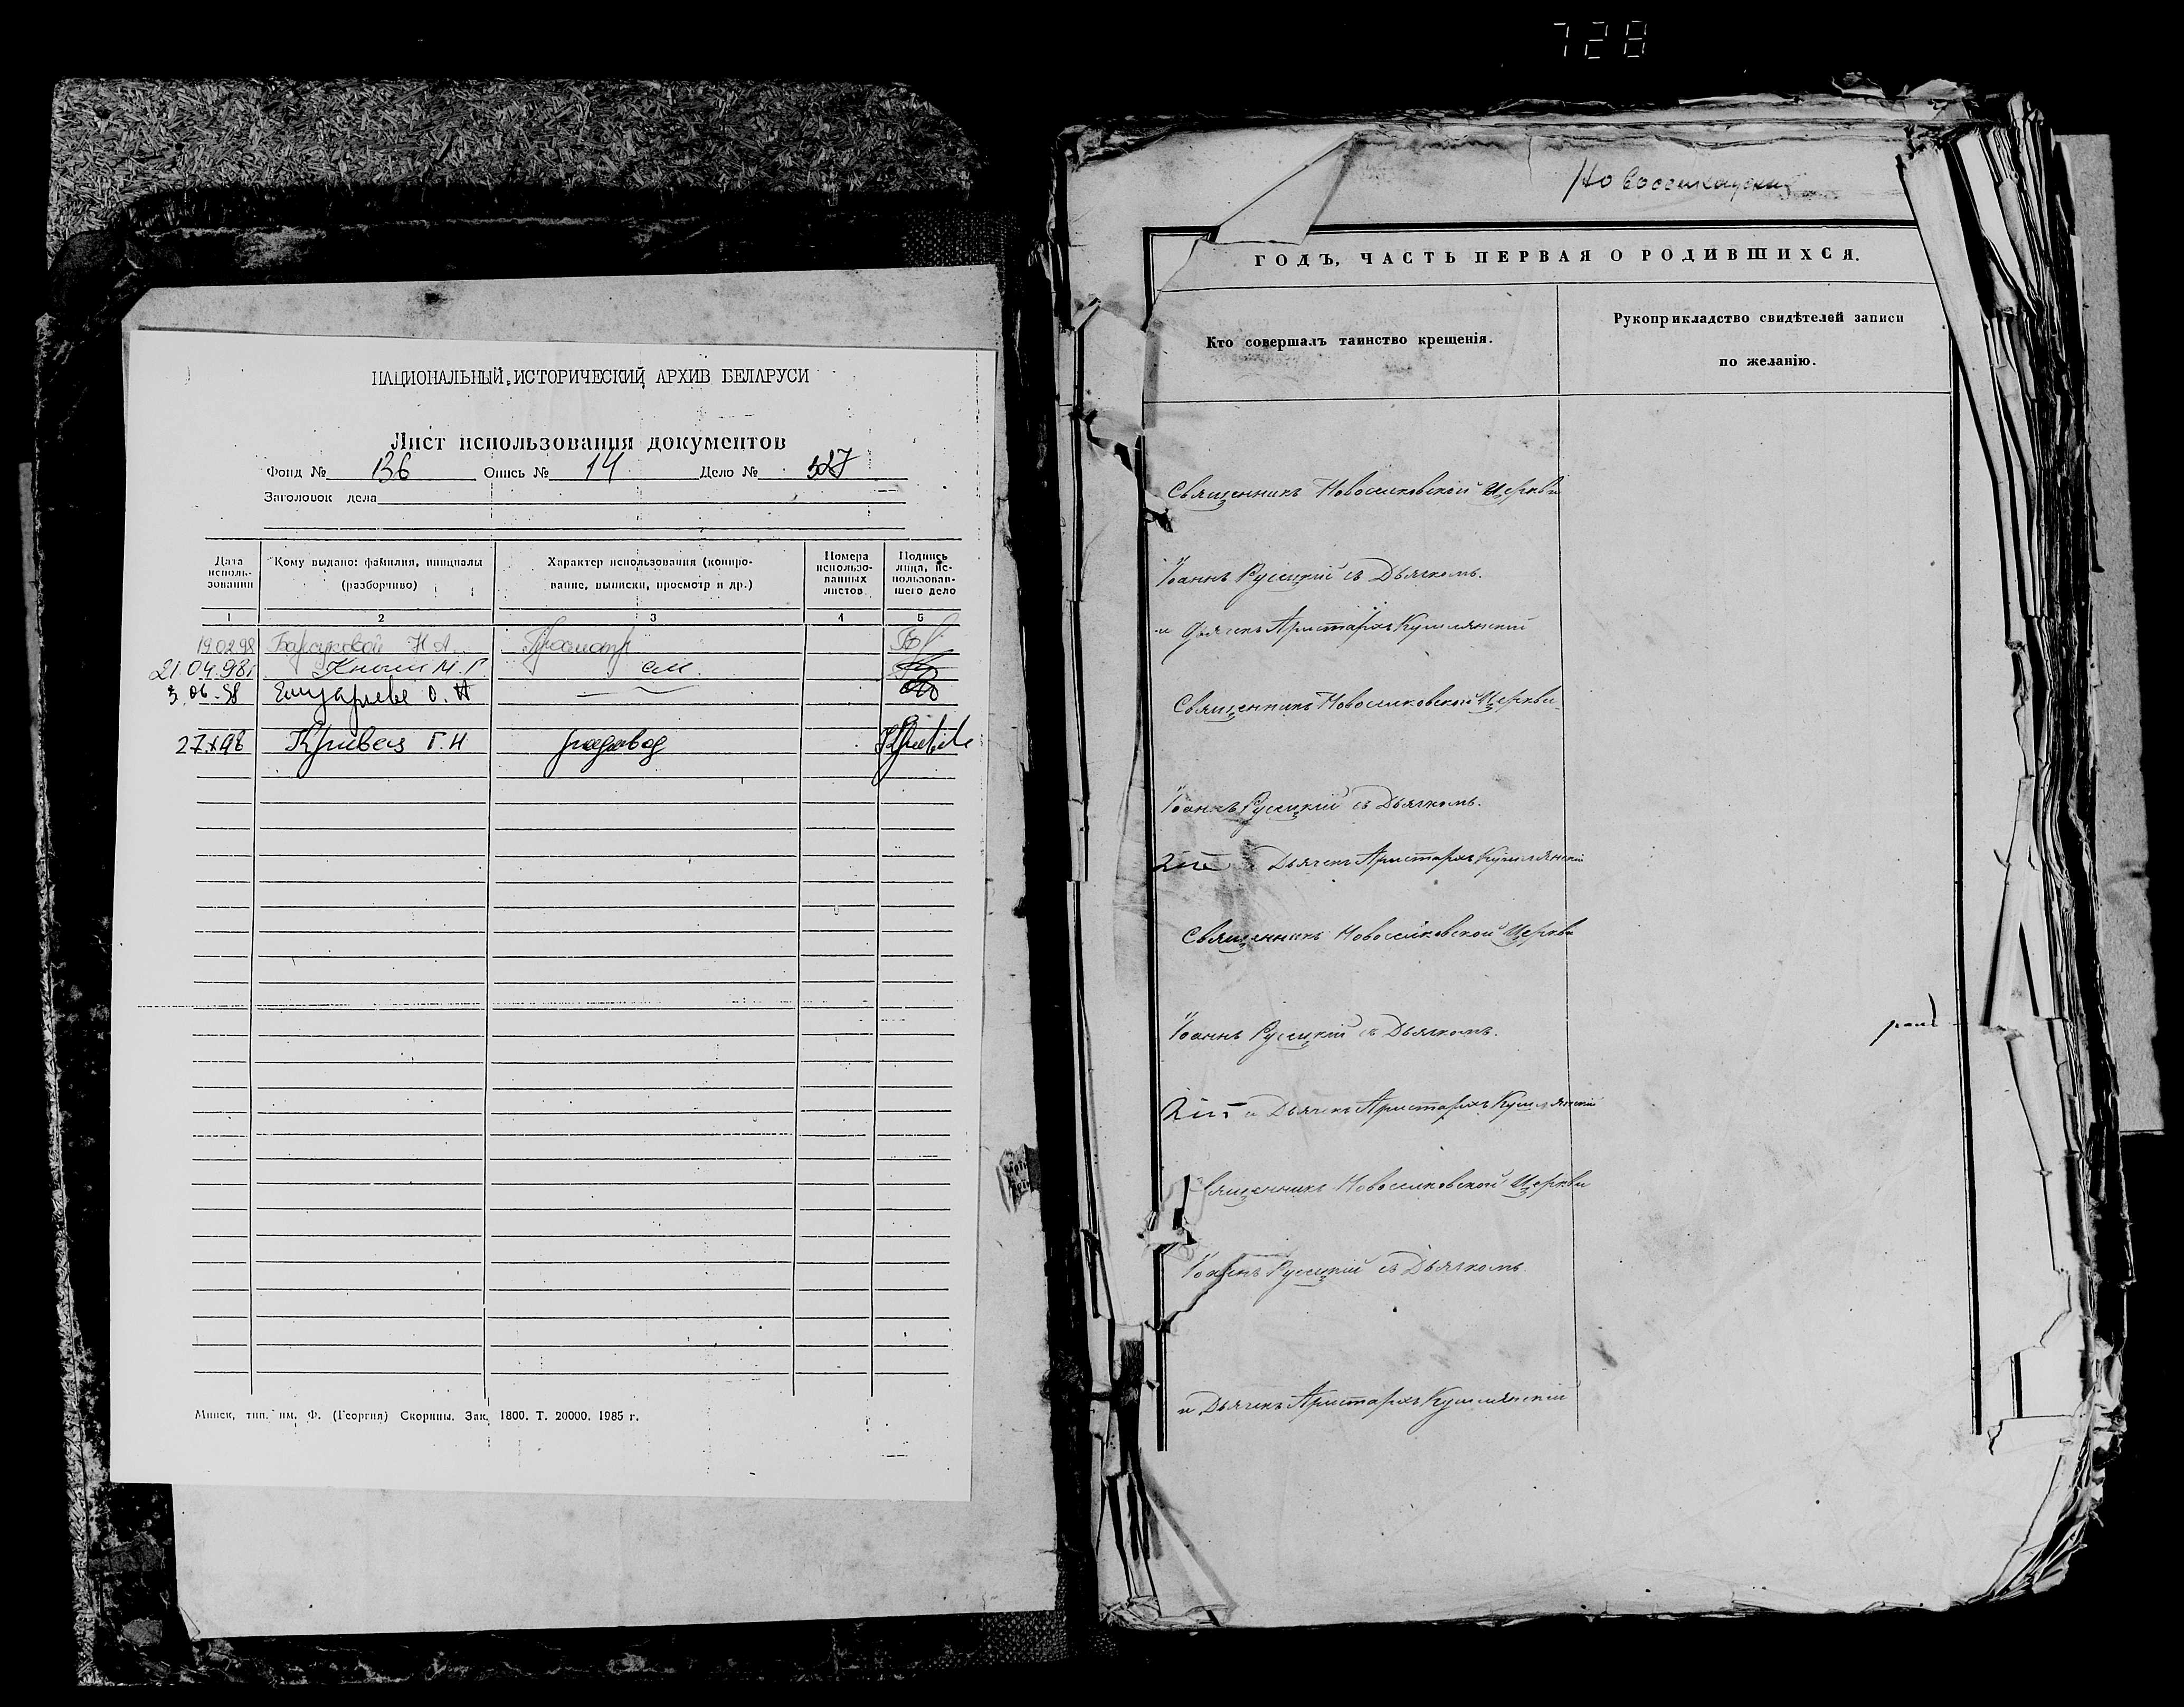 728
НАЦИОНАЛЬНЫЙ ИСТОРИЧЕСКИЙ АРХИВ БЕЛАРУСИ
Лист использования документов
Фонд № 136 Опись № 14 Дело № 527
Заголовок дела
Дата исполь- зования
Кому выдано: фамилия, инициалы (разборчиво)
Характер использования (копиро- вание, выписки, просмотр и др.)
Номера использо- ванных листов
Подпись лица, ис- пользовав- шего дело
1 2 3 4 5
19.02.98 Барсуковой Н А. Просмотр
21.04.98 М. Г. см.
3.06.98 О. А
27.X 98 Кривец Г. Н
Минск, тип. им. Ф. (Георгия) Скорины. Зак. 1800. Т. 20000. 1985 г.
ГОДЪ, ЧАСТЬ ПЕРВАЯ О РОДИВШИХСЯ.
Кто совершалъ таинство крещенія.
Рукоприкладство свидѣтелей записи
по желанію.
Священникъ Новоселковской Церкви
Іоаннъ Русецкій съ Дьячкомъ.
и Дьячекъ Аристархъ Кушлянскій
Священникъ Новоселковской Церкви
Іоаннъ Русецкій съ Дьячкомъ.
Дьячекъ Аристархъ Кушлянскій
Священникъ Новоселковской Церкви
Іоаннъ Русецкій съ Дьячкомъ.
и Дьячекъ Аристархъ Кушлянскій
Священникъ Новоселковской Церкви
Іоаннъ Русецкій съ Дьячкомъ
и Дьячекъ Аристархъ Кушлянскій